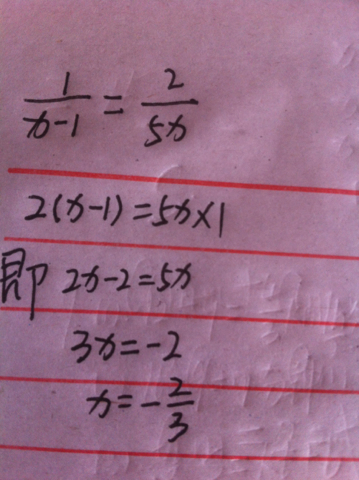 1/(x-1) = 2/(5x)
2(x-1)=5x×1
即 2x-2=5x
3x=-2
x=-2/3